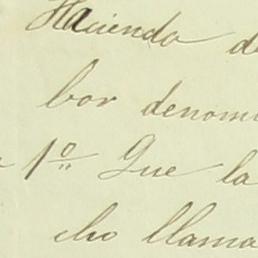 Hacienda de
bor denomi
1º Que la
cho llama